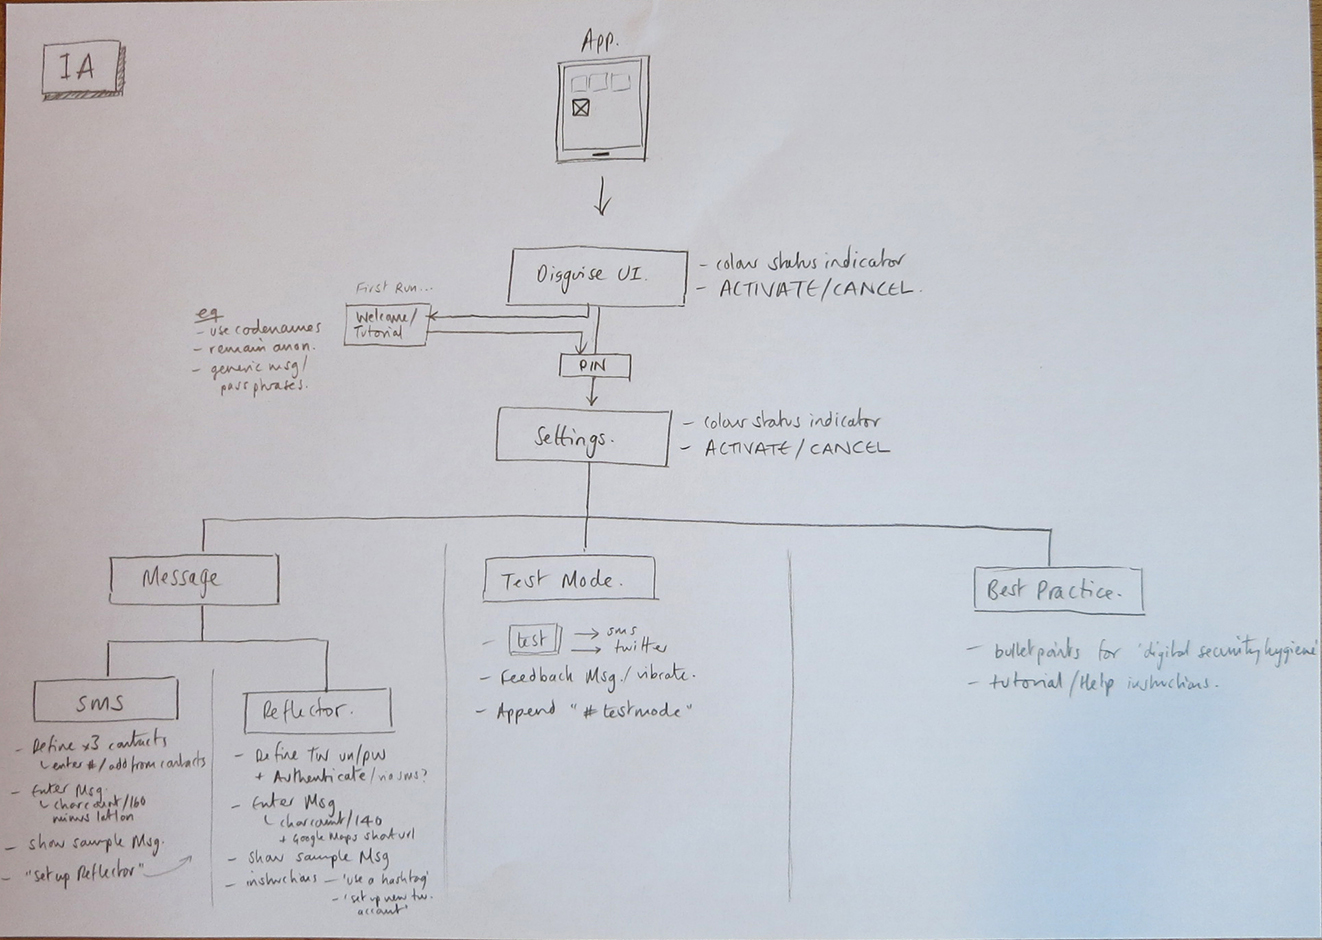 IA
App.
Disguise UI.
- colour status indicator
- ACTIVATE/CANCEL.
First Run...
Welcome/
Tutorial
eg
- use codenames
- remain anon.
- generic msg/
pass phrases.
PIN
Settings.
- colour status indicator
- ACTIVATE/CANCEL
Message
SMS
- Define x3 contacts
enter #/add from contacts
- Enter Msg.
charcount/160
minus lat lon
- show sample Msg.
- "set up Reflector"
Reflector.
- Define TW un/pw
+ Authenticate/no sms?
- Enter Msg
charcount/140
+ Google Maps short url
- Show sample Msg
- instructions - 'use a hashtag'
- 'set up new tw.
account'
Test Mode.
- test → sms
→ twitter
- Feedback Msg./vibrate.
- Append "#testmode"
Best Practice.
- bullet points for 'digital security hygiene'
- tutorial/Help instructions.